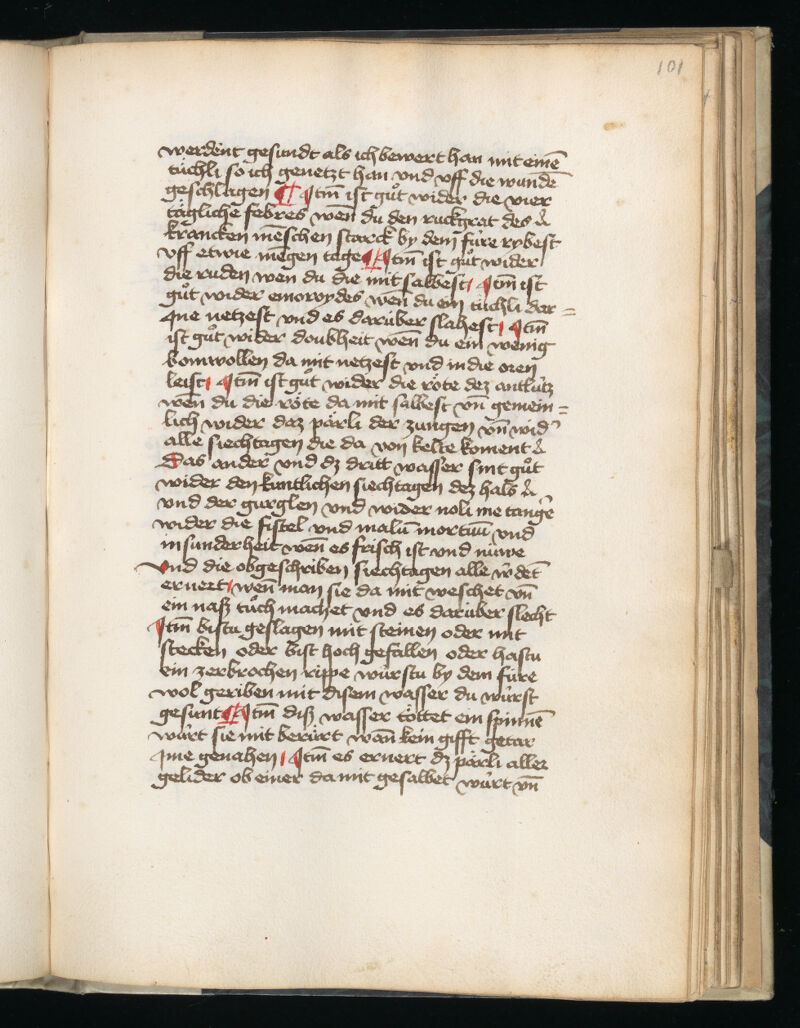 101
werdent gesundt als ich bewert han mit einē
tüchli so ich genetzt han vnd vff die wundē
geschlagen ¶ Itm̄ ist gůt wider die vier
tägliche febres wen̄ du den ruckgrat des
krancken mēschen starck by dem fúre rybest
vff etwie mēgen tage ¶ Itm̄ ist gůt wider
die ruden wen du die mit salbest / Itm̄ ist
gůt wider emoroydes wen̄ du ein tüchli dar=
Jnne netzest vnd es darüber slahest / Itm̄
ist gůt wider doubheit wen̄ du ein wenig
bomwollen da mit netzest vnd in die oren
leist / Itm̄ ist gůt wider die röte dez antlútz
wen̄ du die röte da mit salbest vn̄ gemein=
lich wider daz pärli der zungen vn̄ wid᾽
alle siechtagen die da von kelte koment
Das ander vnd dz dritt wasser sint gůt
wider den kuntlichen siechtagen dez hals
vnd der gurglen vnd wider noli me tangē
wider die fistel vnd malū mortuū vnd
in sunderheit wen̄ es frisch ist vnd núwe
Vnd die obgeschriben siechtagen alle w᾽det
ernert / wen̄ man sie da mit weschet vn̄
ein nasz tůch machet vnd es darüber slecht
Itm̄ bistu geslagen mit steinen oder mit
stecken oder bist hoch gefallen oder hastu
ein zerbrochen rippe würstu by dem fúre
wol geriben mit disem wasser du wúrst
gesunt ¶ Itm̄ disz wasser töttet ein spinnē
würt sie mit berürt wan̄ kein gifft getar
Jme genahen / Itm̄ es ernert dz pärli aller
gelider ob einer da mit gesalbet wúrt vn̄